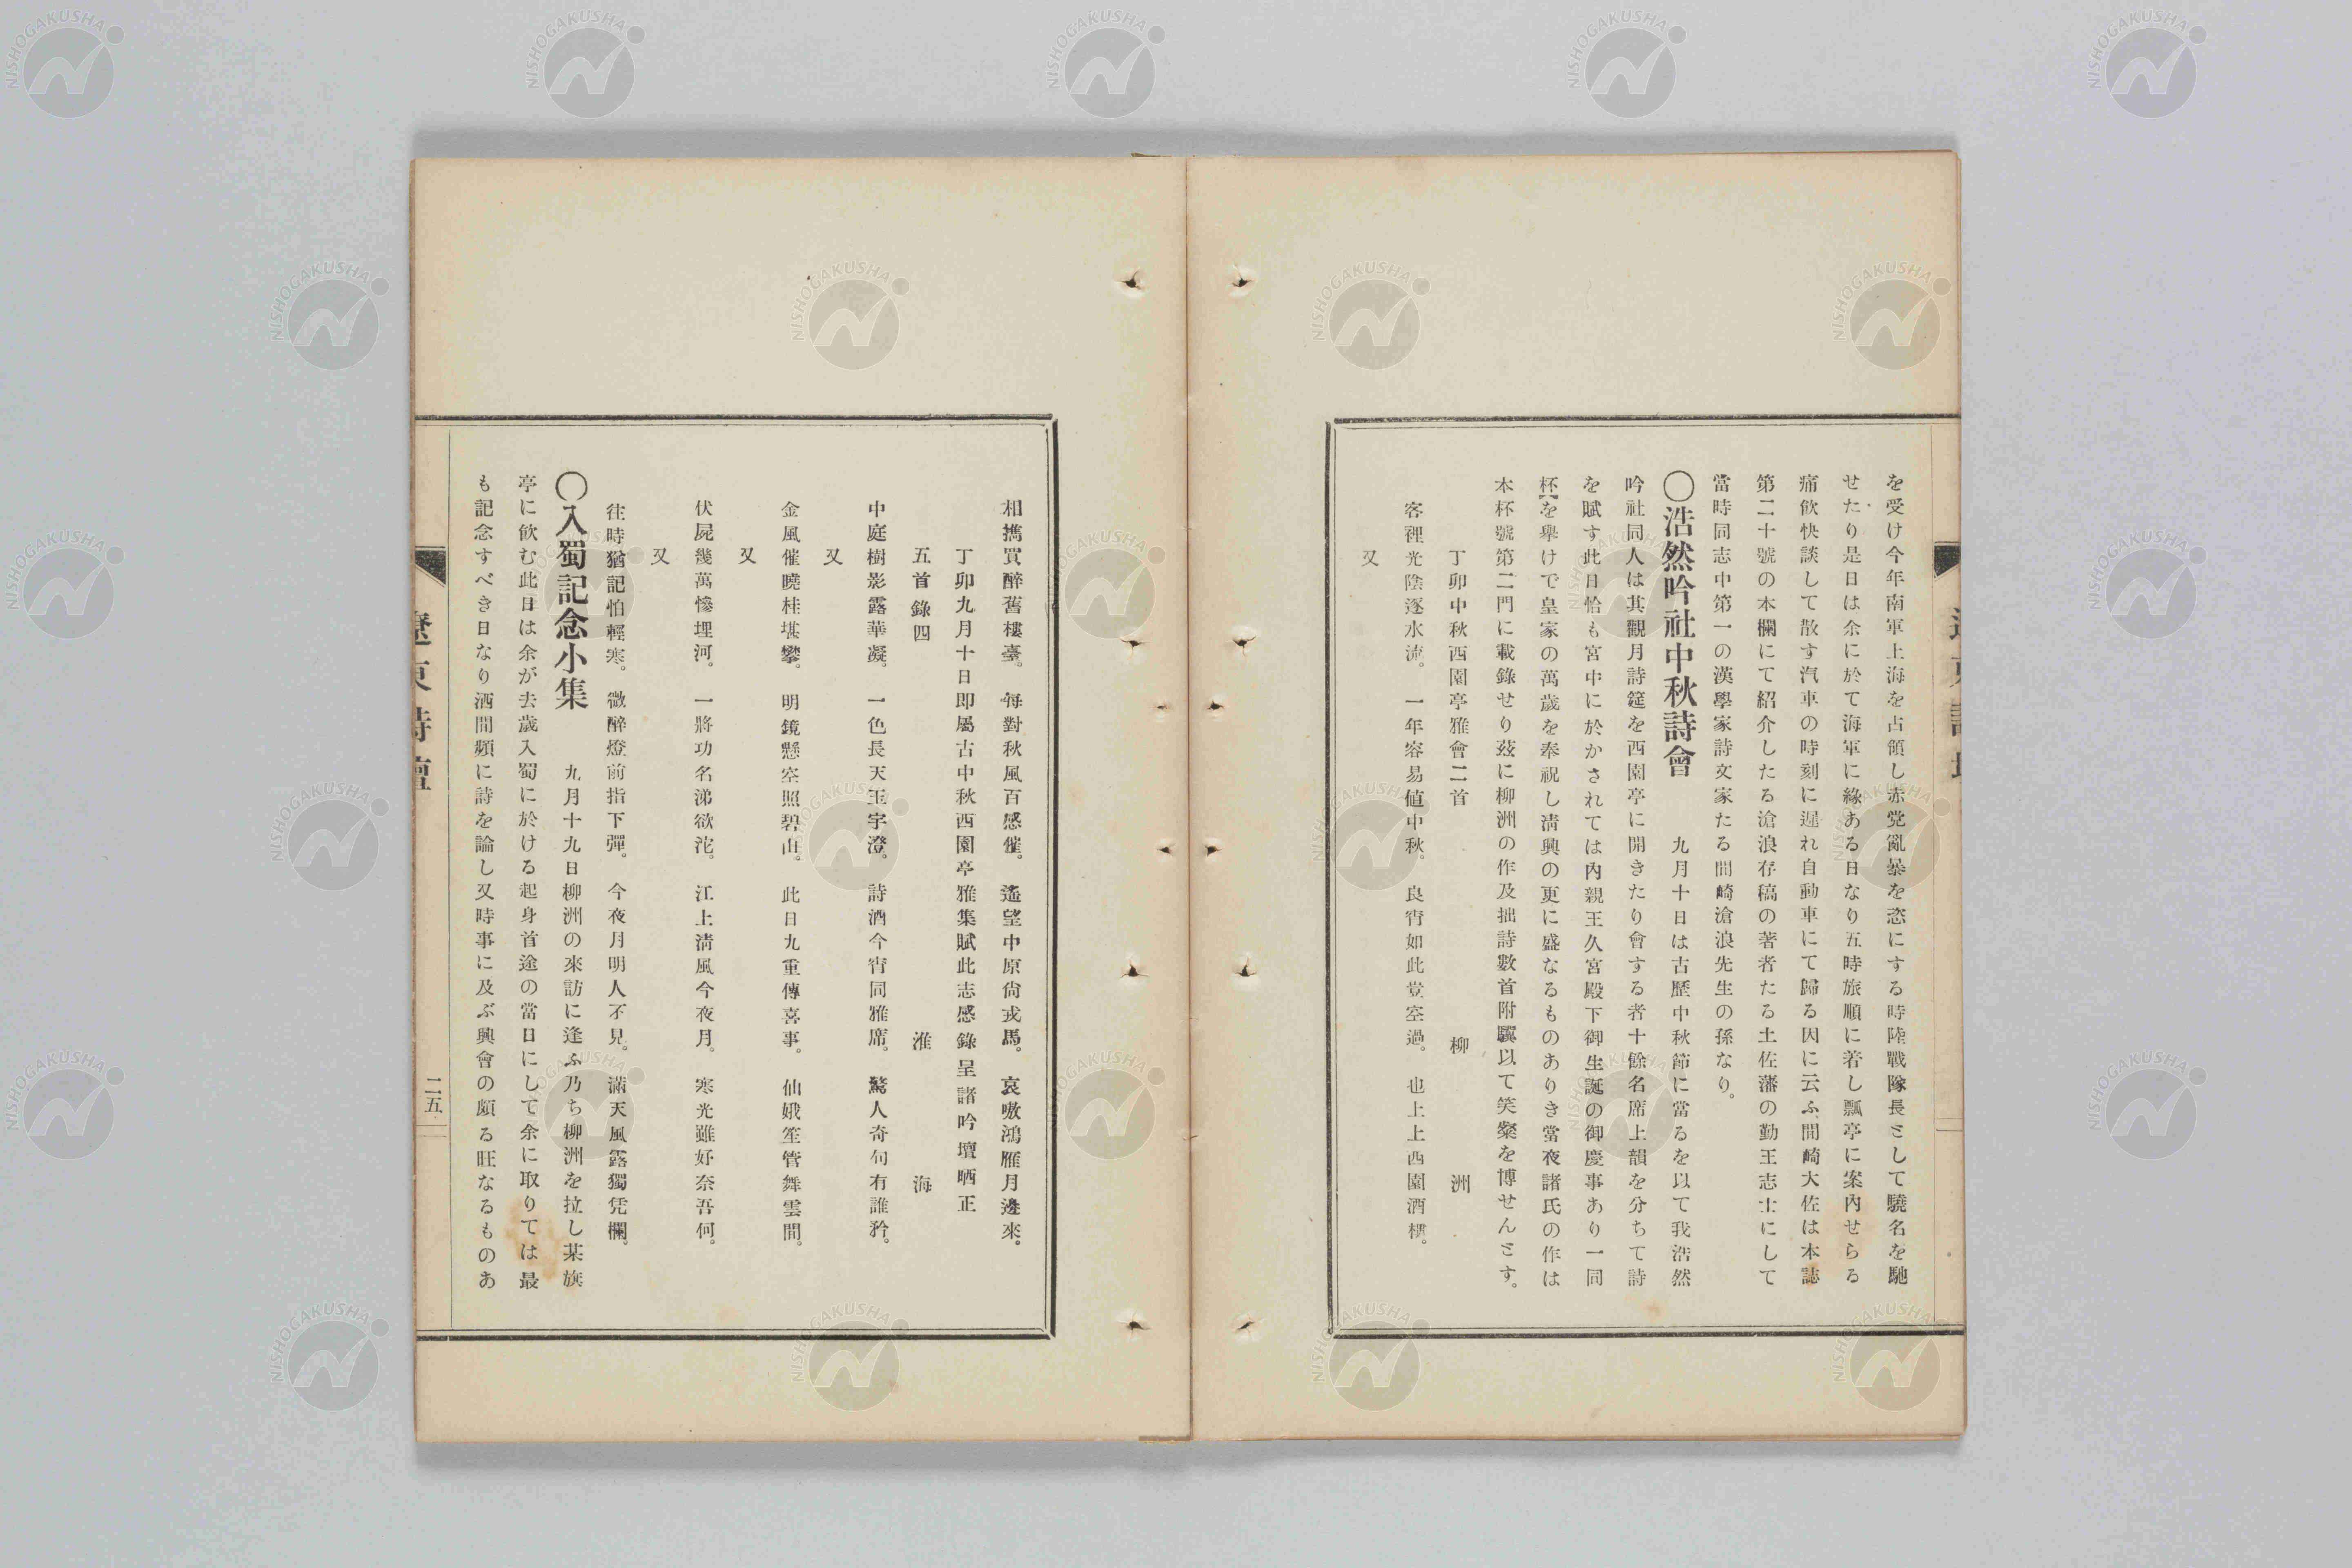 を受け今年南軍上海を占領し赤党亂暴を恣にする時陸戰隊長として驍名を馳
せたり是日は余に於て海軍に緣ある日なり五時旅順に着し瓢亭に案內せらる
痛飮快談して散す汽車の時刻に遲れ自動車にて歸る因に云ふ間崎大佐は本誌
第二十號の本欄にて紹介したる滄浪存稿の著者たる土佐藩の勤王志士にして
當時同志中第一の漢學家詩文家たる間崎滄浪先生の孫なり。
〇浩然吟社中秋詩會 九月十日は古歷中秋節に當るを以て我浩然
吟社同人は其觀月詩筵を西園亭に開きたり會する者十餘名席上韻を分ちて詩
を賦す此日恰も宮中に於かされては內親王久宮殿下御生誕の御慶事あり一同
杯を擧けで皇家の萬歲を奉祝し淸興の更に盛なるものありき當夜諸氏の作は
本杯號第二門に載錄せり茲に柳洲の作及拙詩數首附驥以て笑粲を博せんとす。
丁卯中秋西園亭雅會二首 柳洲
客裡光陰逐水流。一年容易値中秋。良宵如此豈空過。也上上西園酒樓。
又
相攜買醉舊樓臺。每對秋風百感催。遙望中原尙戎馬。哀嗷鴻雁月邊來。
丁卯九月十日卽屬古中秋西園亭雅集賦此志感錄呈諸吟壇晒正
五首錄四 淮海
中庭樹影露華凝。一色長天玉宇澄。詩酒今宵同雅席。驚人奇句有誰矜。
又
金風催曉桂堪攀。明鏡懸空照碧山。此日九重傳喜事。仙娥笙管舞雲間。
又
伏屍幾萬慘埋河。一將功名涕欲沱。江上淸風今夜月。寒光雖好奈吾何。
又
往時猶記怕輕寒。微醉燈前指下彈。今夜月明人不見。滿天風露獨凭欄。
〇入蜀記念小集 九月十九日柳洲の來訪に逢ふ乃ち柳洲を拉し某旗
亭に飮む此日は余が去歲入蜀に於ける起身首途の當日にして余に取りては最
も記念すべき日なり酒間頻に詩を論し又時事に及ぶ興會の頗る旺なるものあ
遼東詩壇
二五